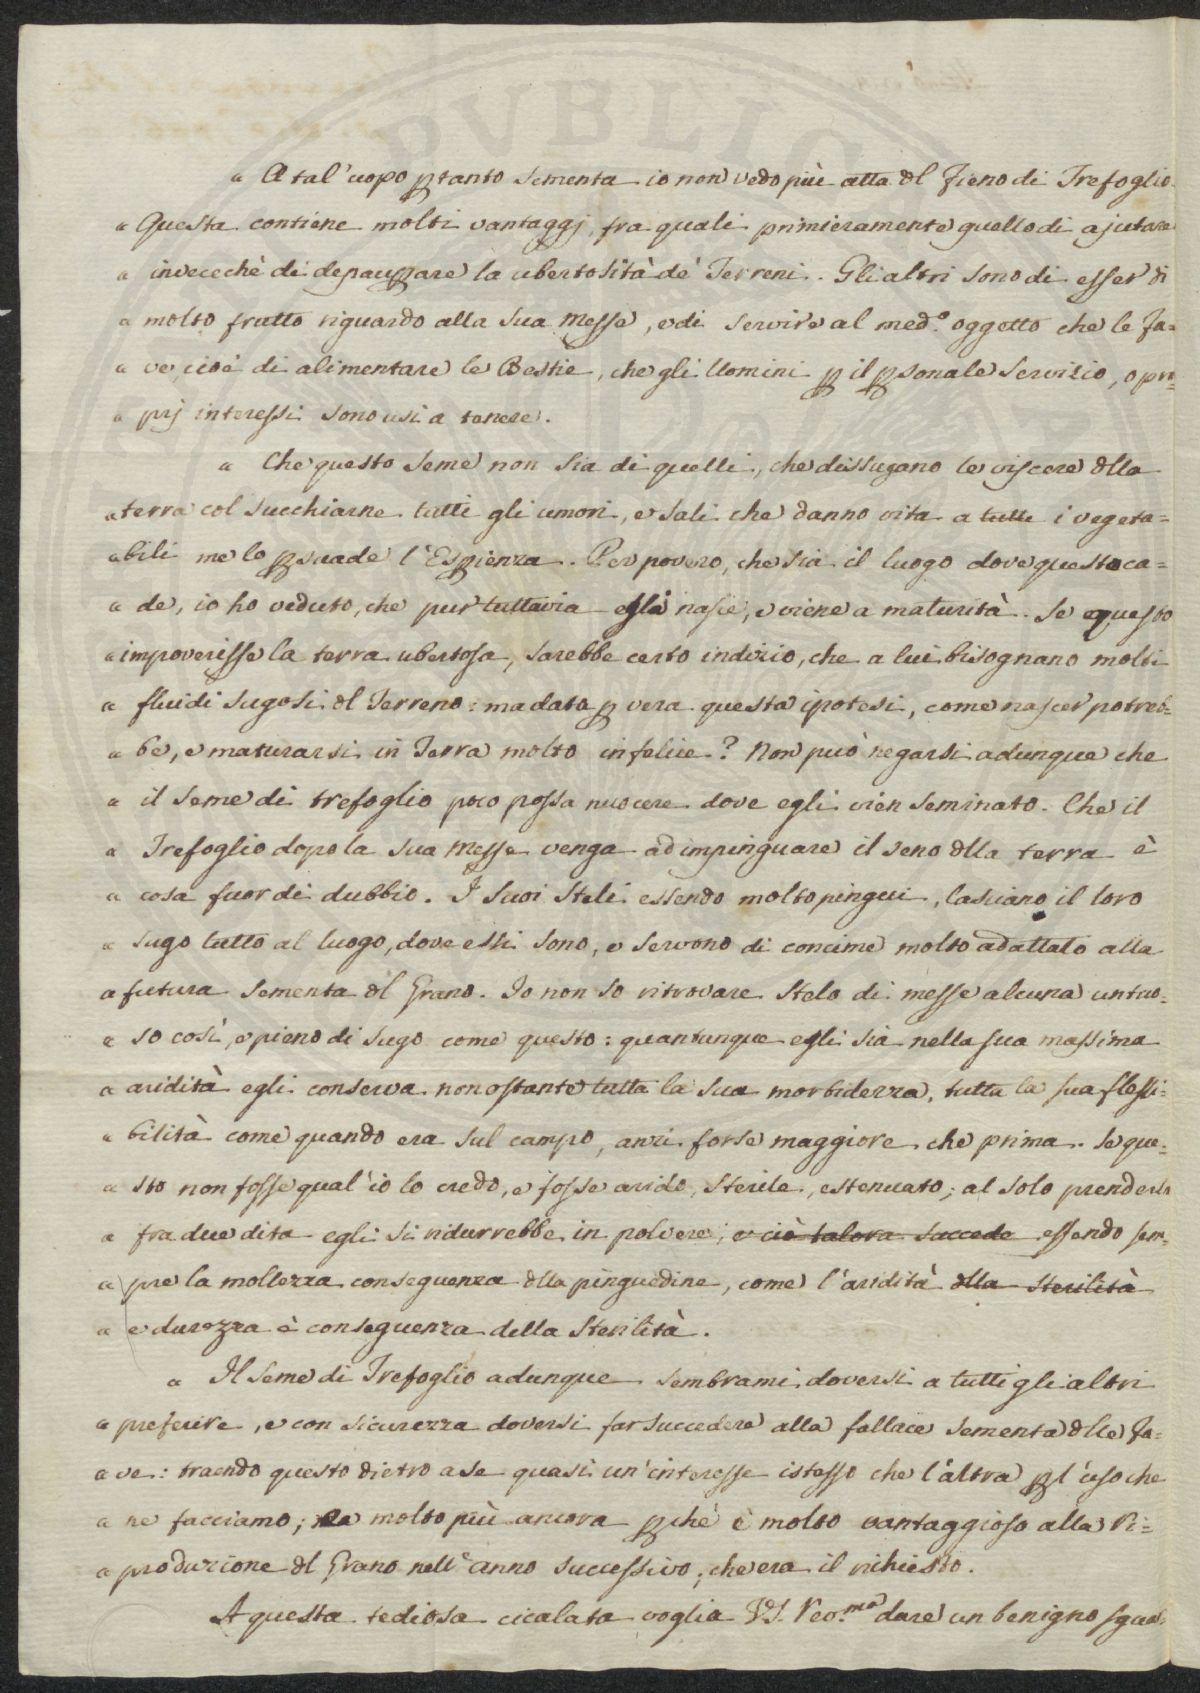 PVBLICA
" A tal'uopo ptanto sementa io non vedo più atta dl Fieno di Trefoglio.
" Questa contiene molti vantaggj, fra quali primieramente quello di ajutare
" invecechè di depaupare la ubertosità de' Terreni. Gli altri sono di esser di
" molto frutto riguardo alla sua Messe, e di servire al med.º oggetto che le Fa=
" ve, cioè di alimentare le Bestie, che gli Uomini p il psonale servizio, o pro=
" prj interessi sono usi a tenere.
" Che questo seme non sia di quelli, che dissugano le viscere dlla
" terra col succhiarne tutti gli umori, e sali che danno vita a tutti i vegeta=
" bili me lo psuade l'Espienza. Per povero, che sia il luogo dove questo ca=
" de, io ho veduto, che pur tuttavia egli nasce, e viene a maturità. Se questo
" impoverisse la terra ubertosa, sarebbe certo indizio, che a lui bisognano molti
" fluidi sugosi dl Terreno: ma data p vera questa ipotesi, come nascer potreb=
" be, e maturarsi in Terra molto infelice? Non può negarsi adunque che
" il seme di trefoglio poco possa nuocere dove egli vien seminato. Che il
" Trefoglio dopo la sua Messe venga ad impinguare il seno dlla terra è
" cosa fuor di dubbio. I suoi steli essendo molto pingui, lasciano il loro
" sugo tutto al luogo, dove essi sono, e servono di concime molto adattato alla
" futura sementa dl Grano. Io non so ritrovare stelo di messe alcuna untuo=
" so così, e pieno di sugo come questo: quantunque egli sia nella sua massima
" aridità egli conserva nonostante tutta la sua morbidezza, tutta la sua flessi=
" bilità come quando era sul campo, anzi forse maggiore che prima. Se que=
" sto non fosse qual'io lo credo, e fosse arido, sterile, estenuato; al solo prenderlo
" fra due dita egli si ridurrebbe in polvere; e ciò talora succede essendo sem=
" pre la mollezza conseguenza dlla pinguedine, come l'aridità dlla sterilità
" e durezza è conseguenza della sterilità.
" Il seme di Trefoglio adunque sembrami doversi a tutti gli altri
" preferire, e con sicurezza doversi far succedere alla fallace sementa dlle Fa=
" ve: traendo questo dietro a se quasi un'interesse istesso che l'altra p l'uso che
" ne facciamo; e molto più ancora pchè è molto vantaggioso alla Ri=
" produzione dl Grano nell'anno successivo, che era il richiesto.
A questa tediosa cicalata voglia V.S. Rev.ma dare un benigno sguar=